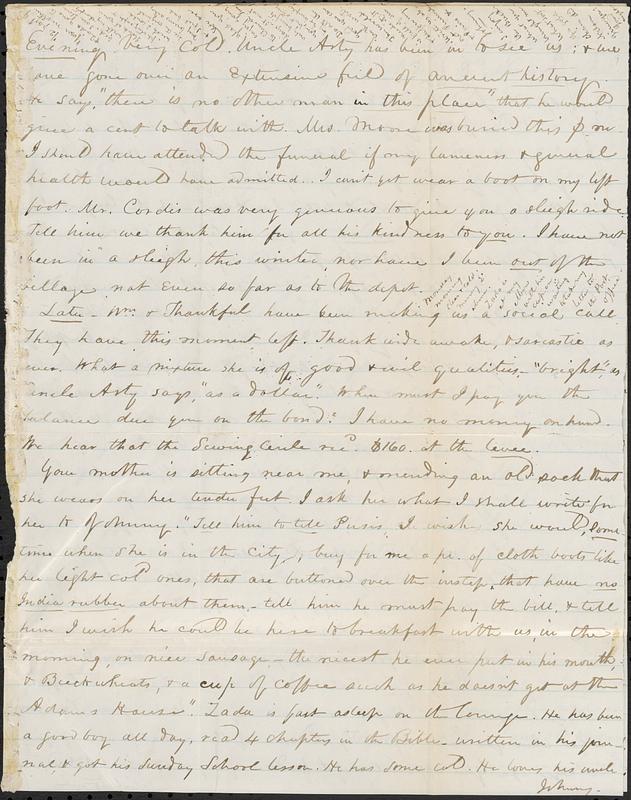 Evening. Very Cold. Uncle Arty has been in to see us; & we
have gone over an Extensive field of ancient history.
He says, "there is no other man in this place" that he would
give a cent to talk with. Mrs. Moore was buried this P.M.
I should have attended the funeral if my lameness & general
health would have admitted. I can't yet wear a boot on my left
foot. Mr. Cordis was very generous to give you a sleigh ride.
Tell him we thank him for all his kindness to you. I have not
been in a sleigh, this winter, nor have I been out of the
village not even so far as to the depot.
Late - Wm. & Thankful have been making us a social call
They have this moment left. Thank. wide awake, & sarcastic as
ever. What a mixture she is of good & evil qualities, - "bright", as
uncle Arty says, "as a dollar". When must I pay you the
balance due you on the bond? I have no money on hand.
We hear that the Sewing Circle rec'd. $160. at the levee.
Your mother is sitting near me, & mending an old sock that
she wears on her tender feet. I ask her what I shall write for
her to Johnny. "Tell him to tell Pusis, I wish she would, some
time when she is in the City, buy for me a pr. of cloth boots like
her light col'd ones, that are buttoned over the instep, that have no
India rubber about them, - tell him he must pay the bill, & tell
him I wish he could be here to breakfast with us in the
morning, on nice Sausage - the nicest he ever put in his mouth,
& Buckwheats, & a cup of coffee such as he doesn't get at the
Adams House". Zada is fast asleep on the lounge. He has been
a good boy all day, read 4 chapters in the Bible - written in his jour-
nal, & got his Sunday School lesson. He has some cold. He loves his uncle
Johnny.